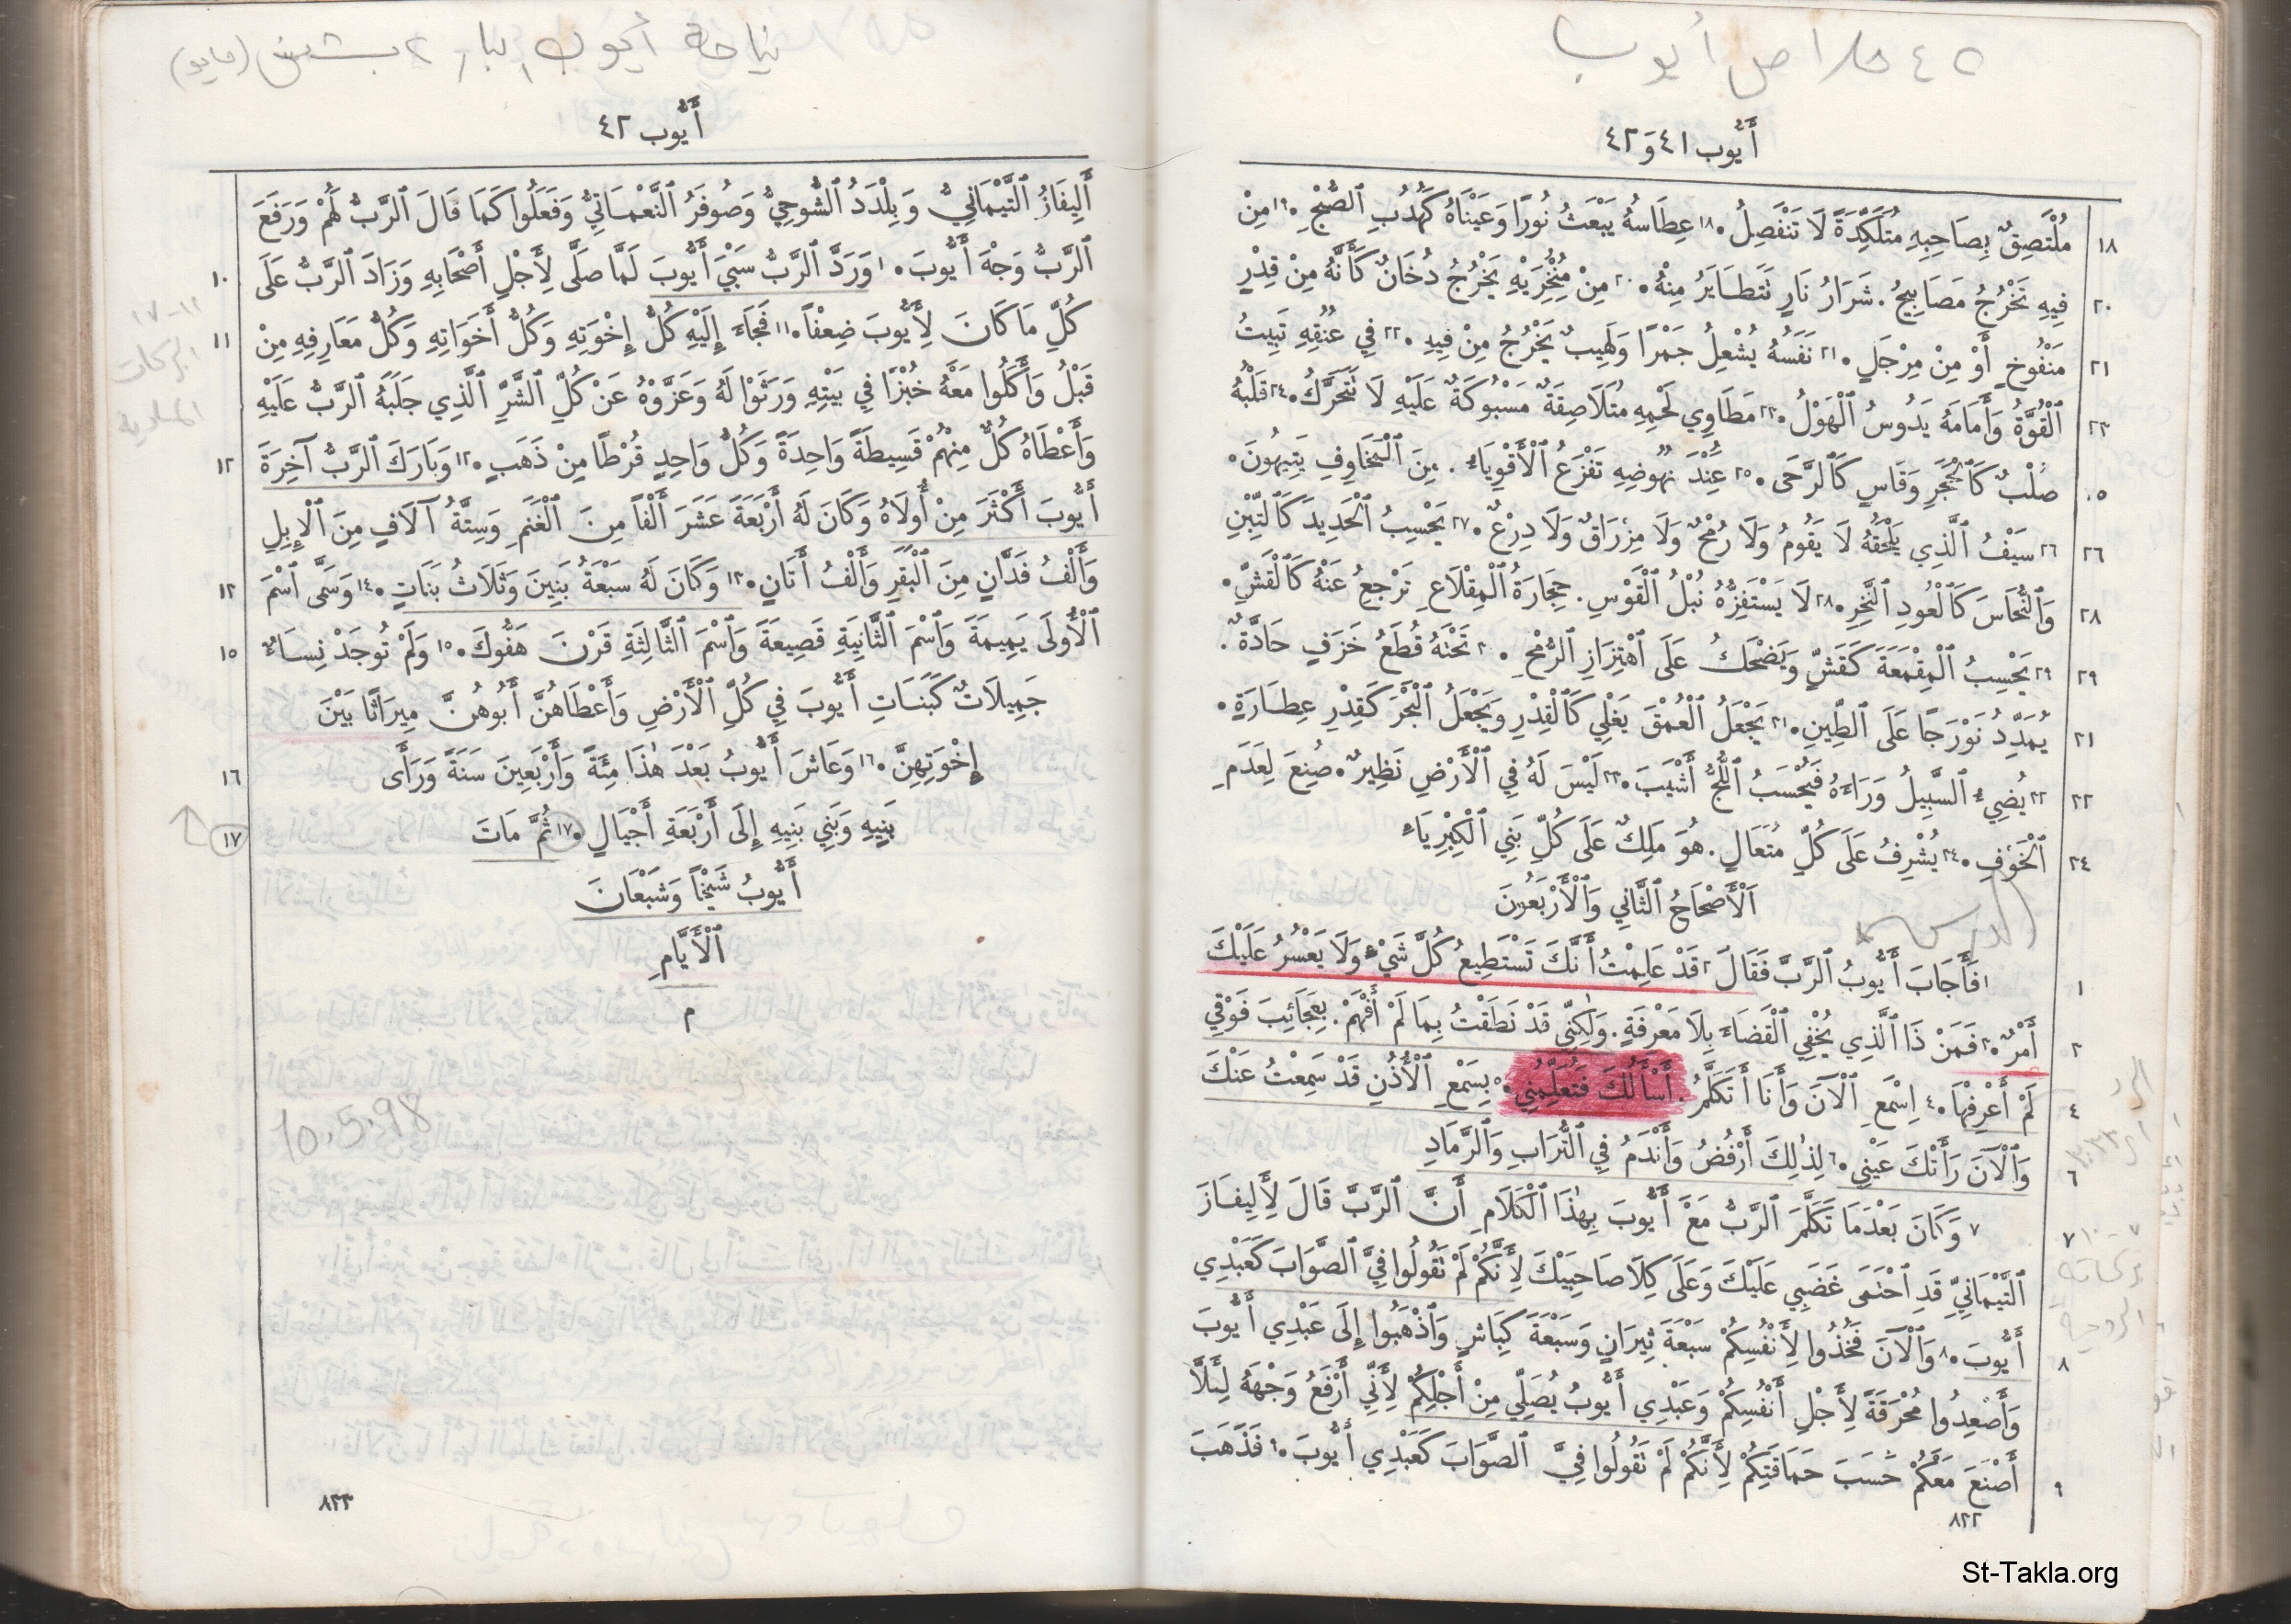 ٤٢ خلاص أيوب
أَيُّوب ٤١ وَ ٤٢
١٨ مُلْتَصِقٌ بِصَاحِبِهِ مُتَلَكِّدَةً لَا تَنْفَصِلُ. ١٨ عِطَاسُهُ يَبْعَثُ نُورًا وَعَيْنَاهُ كَهُدُبِ ٱلصُّبْحِ. ١٩ مِنْ
٢٠ فِيهِ تَخْرُجُ مَصَابِيحُ. شَرَارُ نَارٍ تَتَطَايَرُ مِنْهُ. ٢٠ مِنْ مُنْخُرَيْهِ يَخْرُجُ دُخَانٌ كَأَنَّهُ مِنْ قِدْرٍ
٢١ مَنْفُوخٍ أَوْ مِنْ مِرْجَلٍ. ٢١ نَفَسُهُ يُشْعِلُ جَمْرًا وَلَهِيبٌ يَخْرُجُ مِنْ فِيهِ. ٢٢ فِي عُنُقِهِ تَبِيتُ
٢٣ ٱلْقُوَّةُ وَأَمَامَهُ يَدُوسُ ٱلْهَوْلُ. ٢٣ مَطَاوِي لَحْمِهِ مُتَلَاصِقَةٌ مَسْبُوكَةٌ عَلَيْهِ لَا تَتَحَرَّكُ. ٢٤ قَلْبُهُ
٢٥ صُلْبٌ كَٱلْحَجَرِ وَقَاسٍ كَٱلرَّحَى. ٢٥ عِنْدَ نُهُوضِهِ تَفْزَعُ ٱلْأَقْوِيَاءُ. مِنَ ٱلْمَخَاوِفِ يَتِيهُونَ.
٢٦ ٢٦ سَيْفُ ٱلَّذِي يَلْحَقُهُ لَا يَقُومُ وَلَا رُمْحٌ وَلَا مِزْرَاقٌ وَلَا دِرْعٌ. ٢٧ يَحْسِبُ ٱلْحَدِيدَ كَٱلتِّبْنِ
٢٨ وَٱلنُّحَاسَ كَٱلْعُودِ ٱلنَّخِرِ. ٢٨ لَا يَسْتَفِزُّهُ نُبْلُ ٱلْقَوْسِ. حِجَارَةُ ٱلْمِقْلَاعِ تَرْجِعُ عَنْهُ كَٱلْقَشِّ.
٢٩ ٢٩ يَحْسِبُ ٱلْمِقْمَعَةَ كَقَشٍّ وَيَضْحَكُ عَلَى ٱهْتِزَازِ ٱلرُّمْحِ. ٣٠ تَحْتَهُ قُطَعُ خَزَفٍ حَادَّةٌ.
٣١ يُمَدِّدُ نَوْرَجًا عَلَى ٱلطِّينِ. ٣١ يَجْعَلُ ٱلْعُمْقَ يَغْلِي كَٱلْقِدْرِ وَيَجْعَلُ ٱلْبَحْرَ كَقِدْرِ عِطَارَةٍ.
٣٢ ٣٢ يُضِيءُ ٱلسَّبِيلُ وَرَاءَهُ فَيُحْسَبُ ٱللُّجُّ أَشْيَبَ. ٣٣ لَيْسَ لَهُ فِي ٱلْأَرْضِ نَظِيرٌ. صُنِعَ لِعَدَمِ
٣٤ ٱلْخَوْفِ. ٣٤ يُشْرِفُ عَلَى كُلِّ مُتَعَالٍ. هُوَ مَلِكٌ عَلَى كُلِّ بَنِي ٱلْكِبْرِيَاءِ
اَلْأَصْحَاحُ ٱلثَّانِي وَٱلْأَرْبَعُونَ
١ ١ فَأَجَابَ أَيُّوبُ ٱلرَّبَّ فَقَالَ ٢ قَدْ عَلِمْتُ أَنَّكَ تَسْتَطِيعُ كُلَّ شَيْءٍ وَلَا يَعْسُرُ عَلَيْكَ
٣ أَمْرٌ. ٣ فَمَنْ ذَا ٱلَّذِي يُخْفِي ٱلْقَضَاءَ بِلَا مَعْرِفَةٍ. وَلٰكِنِّي قَدْ نَطَقْتُ بِمَا لَمْ أَفْهَمْ. بِعَجَائِبَ فَوْقِي
٤ لَمْ أَعْرِفْهَا. ٤ اِسْمَعِ ٱلْآنَ وَأَنَا أَتَكَلَّمُ. أَسْأَلُكَ فَتُعَلِّمُنِي. ٥ بِسَمْعِ ٱلْأُذُنِ قَدْ سَمِعْتُ عَنْكَ
٦ وَٱلْآنَ رَأَتْكَ عَيْنِي. ٦ لِذٰلِكَ أَرْفُضُ وَأَنْدَمُ فِي ٱلتُّرَابِ وَٱلرَّمَادِ
٧ ٧ وَكَانَ بَعْدَمَا تَكَلَّمَ ٱلرَّبُّ مَعَ أَيُّوبَ بِهٰذَا ٱلْكَلَامِ أَنَّ ٱلرَّبَّ قَالَ لِأَلِيفَازَ
ٱلتَّيْمَانِيِّ قَدِ ٱحْتَمَى غَضَبِي عَلَيْكَ وَعَلَى كِلَا صَاحِبَيْكَ لِأَنَّكُمْ لَمْ تَقُولُوا فِيَّ ٱلصَّوَابَ كَعَبْدِي
٨ أَيُّوبَ. ٨ وَٱلْآنَ فَخُذُوا لِأَنْفُسِكُمْ سَبْعَةَ ثِيرَانٍ وَسَبْعَةَ كِبَاشٍ وَٱذْهَبُوا إِلَى عَبْدِي أَيُّوبَ
وَأَصْعِدُوا مُحْرَقَةً لِأَجْلِ أَنْفُسِكُمْ وَعَبْدِي أَيُّوبُ يُصَلِّي مِنْ أَجْلِكُمْ لِأَنِّي أَرْفَعُ وَجْهَهُ لِئَلَّا
٩ أَصْنَعَ مَعَكُمْ حَسَبَ حَمَاقَتِكُمْ لِأَنَّكُمْ لَمْ تَقُولُوا فِيَّ ٱلصَّوَابَ كَعَبْدِي أَيُّوبَ. ٩ فَذَهَبَ
٨٢٢
نياحة أيوب البار ٢ بشنس (مايو)
أَيُّوب ٤٢
أَلِيفَازُ ٱلتَّيْمَانِيُّ وَبِلْدَدُ ٱلشُّوحِيُّ وَصُوفَرُ ٱلنَّعْمَاتِيُّ وَفَعَلُوا كَمَا قَالَ ٱلرَّبُّ لَهُمْ وَرَفَعَ
١٠ ٱلرَّبُّ وَجْهَ أَيُّوبَ. ١٠ وَرَدَّ ٱلرَّبُّ سَبْيَ أَيُّوبَ لَمَّا صَلَّى لِأَجْلِ أَصْحَابِهِ وَزَادَ ٱلرَّبُّ عَلَى
١١ كُلِّ مَا كَانَ لِأَيُّوبَ ضِعْفًا. ١١ فَجَاءَ إِلَيْهِ كُلُّ إِخْوَتِهِ وَكُلُّ أَخَوَاتِهِ وَكُلُّ مَعَارِفِهِ مِنْ
قَبْلُ وَأَكَلُوا مَعَهُ خُبْزًا فِي بَيْتِهِ وَرَثَوْا لَهُ وَعَزَّوْهُ عَنْ كُلِّ ٱلشَّرِّ ٱلَّذِي جَلَبَهُ ٱلرَّبُّ عَلَيْهِ
١٢ وَأَعْطَاهُ كُلٌّ مِنْهُمْ قَسِيطَةً وَاحِدَةً وَكُلُّ وَاحِدٍ قُرْطًا مِنْ ذَهَبٍ. ١٢ وَبَارَكَ ٱلرَّبُّ آخِرَةَ
أَيُّوبَ أَكْثَرَ مِنْ أُولَاهُ وَكَانَ لَهُ أَرْبَعَةَ عَشَرَ أَلْفًا مِنَ ٱلْغَنَمِ وَسِتَّةُ آلَافٍ مِنَ ٱلْإِبِلِ
١٣ وَأَلْفُ فَدَّانٍ مِنَ ٱلْبَقَرِ وَأَلْفُ أَتَانٍ. ١٣ وَكَانَ لَهُ سَبْعَةُ بَنِينَ وَثَلَاثُ بَنَاتٍ. ١٤ وَسَمَّى ٱسْمَ
١٥ ٱلْأُولَى يَمِيمَةَ وَٱسْمَ ٱلثَّانِيَةِ قَصِيعَةَ وَٱسْمَ ٱلثَّالِثَةِ قَرْنَ هَفُّوكَ. ١٥ وَلَمْ تُوجَدْ نِسَاءٌ
جَمِيلَاتٌ كَبَنَاتِ أَيُّوبَ فِي كُلِّ ٱلْأَرْضِ وَأَعْطَاهُنَّ أَبُوهُنَّ مِيرَاثًا بَيْنَ
١٦ إِخْوَتِهِنَّ. ١٦ وَعَاشَ أَيُّوبُ بَعْدَ هٰذَا مِئَةً وَأَرْبَعِينَ سَنَةً وَرَأَى
١٧ بَنِيهِ وَبَنِي بَنِيهِ إِلَى أَرْبَعَةِ أَجْيَالٍ. ١٧ ثُمَّ مَاتَ
أَيُّوبُ شَيْخًا وَشَبْعَانَ
ٱلْأَيَّامِ
م
١١-١٧
البركات
المادية
10.5.98
٨٢٣
St-Takla.org